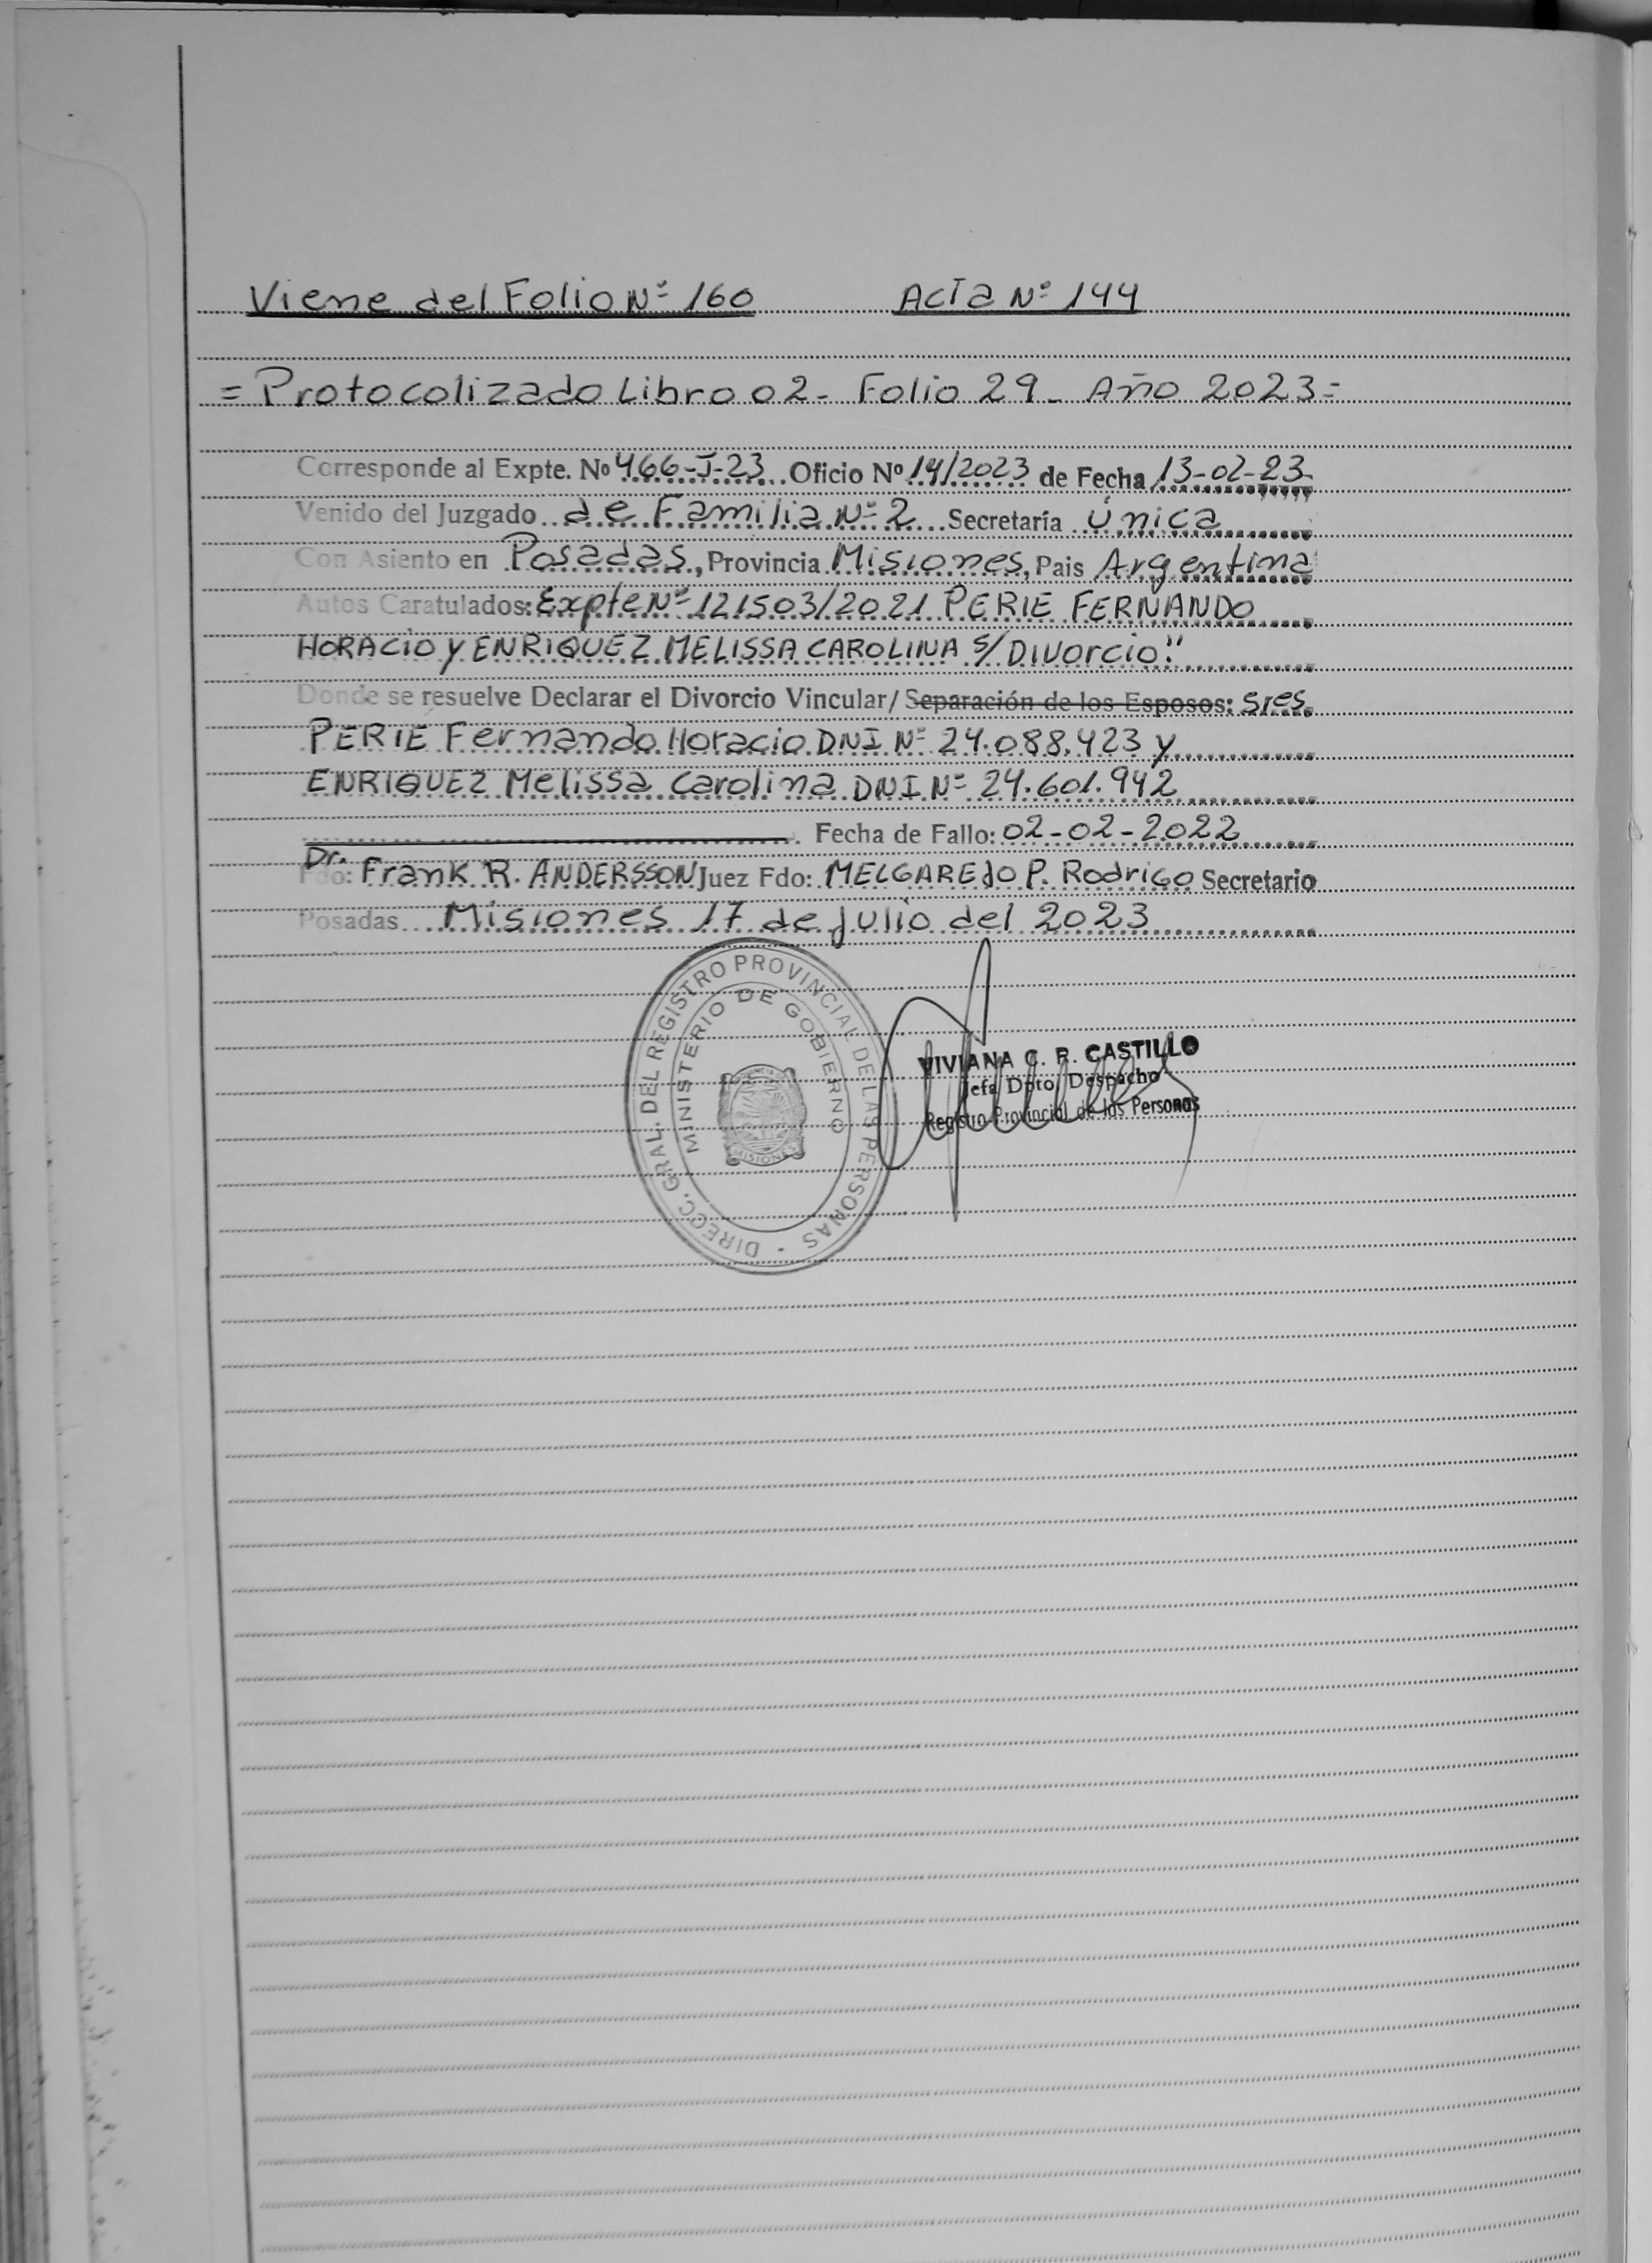 Viene del Folio Nº 160 Acta Nº 144
= Protocolizado Libro 02 - Folio 29 - Año 2023 =
Corresponde al Expte. Nº 466-J-23 Oficio Nº 14/2023 de Fecha 13-02-23
Venido del Juzgado de Familia Nº 2 Secretaría Única
Con Asiento en Posadas, Provincia Misiones, Pais Argentina
Autos Caratulados: Expte Nº 121503/2021 PERIE FERNANDO
HORACIO y ENRIQUEZ MELISSA CAROLINA S/ Divorcio"
Donde se resuelve Declarar el Divorcio Vincular/ Separación de los Esposos: sres.
PERIE Fernando Horacio DNI Nº 24.088.423 y
ENRIQUEZ Melissa Carolina DNI Nº 24.601.942
Fecha de Fallo: 02-02-2022
Dr.
Fdo: Frank R. ANDERSSON Juez Fdo: MELGAREJO P. Rodrigo Secretario
Posadas Misiones 17 de julio del 2023
DIRECC. GRAL. DEL REGISTRO PROVINCIAL DE LAS PERSONAS -
MINISTERIO DE GOBIERNO
MISIONES
VIVIANA C. R. CASTILLO
Jefa Dpto. Despacho
Registro Provincial de las Personas